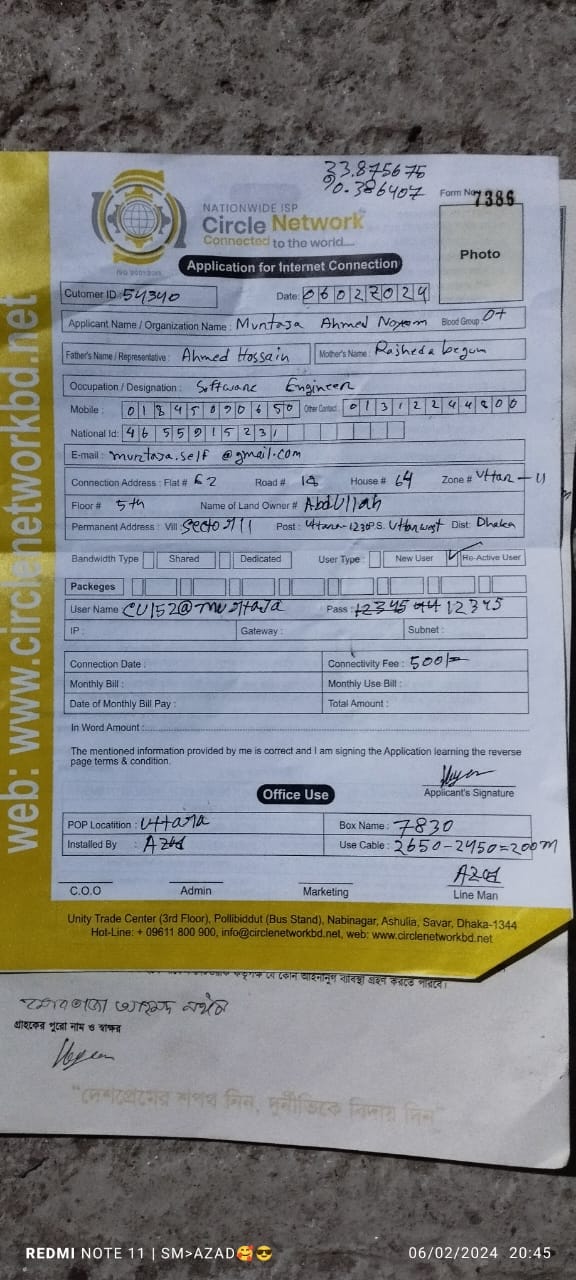 33.875675
90.386407
Form No 7386
NATIONWIDE ISP
Circle Network
Connected to the world....
ISO 9001:2015
Photo
Application for Internet Connection
Cutomer ID: 54340 Date: 06022024
Applicant Name / Organization Name : Muntaja Ahmed Blood Group: O+
Father's Name / Representative : Ahmed Hossain Mother's Name : Rasheda begum
Occupation / Designation : Software Engineer
Mobile : 01845090650 Other Contact : 01312244800
National Id: 4655915231
E-mail : @gmail.com
Connection Address : Flat # Road # 14 House # 64 Zone # Uttar - 11
Floor # 5th Name of Land Owner # Abdullah
Permanent Address : Vill : Sector 11 Post : Uttara-1230 P.S. Uttarwest Dist: Dhaka
Bandwidth Type Shared Dedicated User Type : New User Re-Active User
Packeges
User Name Pass : 12345
IP : Gateway : Subnet :
Connection Date : Connectivity Fee : 500/=
Monthly Bill : Monthly Use Bill :
Date of Monthly Bill Pay : Total Amount :
In Word Amount:
The mentioned information provided by me is correct and I am signing the Application learning the reverse
page terms & condition.
Applicant's Signature
Office Use
POP Locatition : Uttara Box Name : 7830
Installed By : Azad Use Cable : 2650-2450=200m
Azad
C.O.O Admin Marketing Line Man
Unity Trade Center (3rd Floor), Pollibiddut (Bus Stand), Nabinagar, Ashulia, Savar, Dhaka-1344
Hot-Line: + 09611 800 900, info@circlenetworkbd.net, web: www.circlenetworkbd.net
web: www.circlenetworkbd.net
যে কোন আইনানুগ ব্যবস্থা গ্রহণ করতে পারবে।
গ্রাহকের পুরো নাম ও স্বাক্ষর
"দেশপ্রেমের শপথ নিন, দুর্নীতিকে বিদায় দিন"
REDMI NOTE 11 | SM>AZAD🥰😎 06/02/2024 20:45